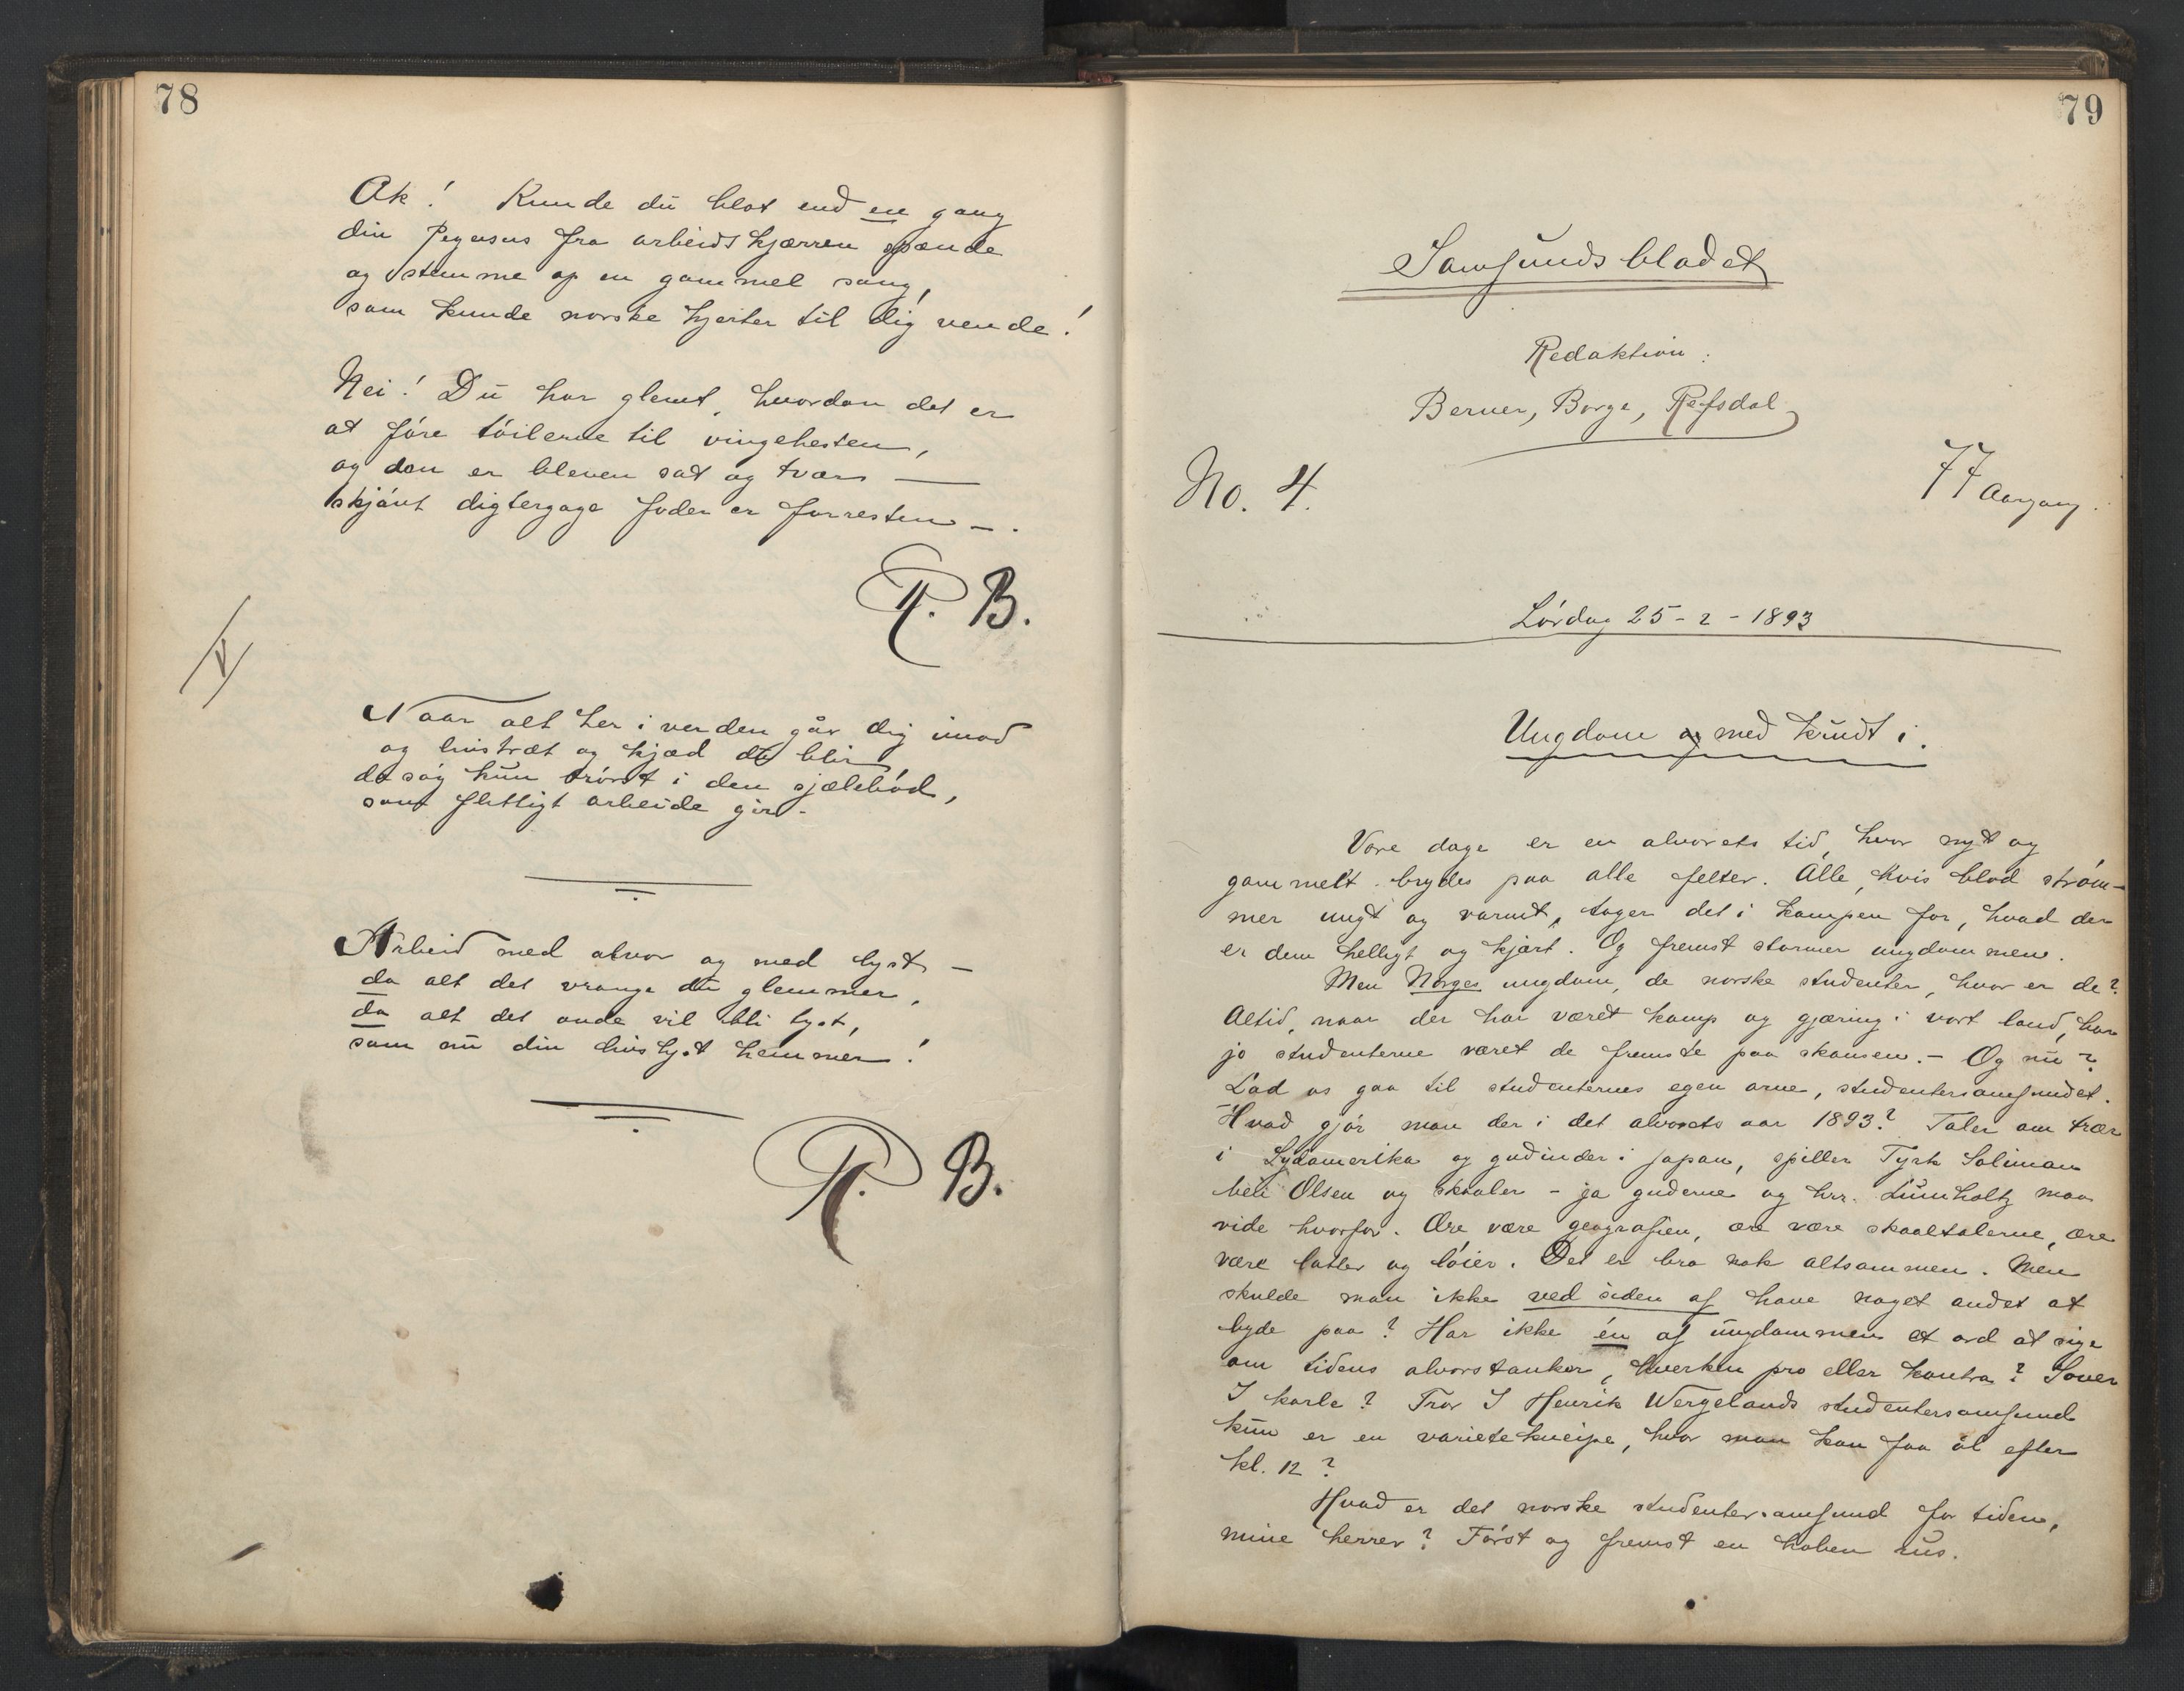 78
Ak! Kunde du blot end en gang
din Pegasus fra arbeidskjærren spænde
og stemme op en gammel sang,
som kunde norske hjerter til dig vende!
Nei! Du har glemt, hvordan det er
at føre tøilerne til vingehesten,
og den er bleven sat og tvær —
skjønt digtergage foder er forresten –.
R. B.
Naar alt her i verden går dig imod
og livstræt og kjæd du blir,
da søg kun trøst i den sjælebod,
som flittigt arbeide gir.
Arbeid med alvor og med lyst –
da alt det vrange du glemmer,
da alt det onde vil bli lyst,
som nu din livslyst hemmer!
R. B.
79
Samfundsbladet
Redaktion:
Berner, Borge, Refsdal
No. 4.
77 Aargang.
Lørdag 25 - 2 - 1893
Ungdom og med krudt i.
Vore dage er en alvorets tid, hvor nyt og
gammelt brydes paa alle felter. Alle, hvis blod strøm-
mer ungt og varmt, tager det i kampen for, hvad der
er dem helligt og kjært. Og fremst stormer ungdommen.
Men Norges ungdom, de norske studenter, hvor er de?
Altid, naar der har været kamp og gjæring i vort land, har
jo studenterne været de fremste paa skansen. – Og nu?
Lad os gaa til studenternes egen arne, studentersamfundet.
Hvad gjør man der i det alvorets aar 1893? Taler om trær
i Sydamerika og gudinder i Japan, spiller Tyrk Soliman
Olsen og skaaler – ja guderne og hrr. Lumholtz maa
vide hvorfor. Ære være geografien, ære være skaaltalerne, ære
være latter og løier. Det er bra nok altsammen. Men
skulde man ikke ved siden af have noget andet at
byde paa? Har ikke én af ungdommen et ord at sige
om tidens alvorstanker, hverken pro eller kontra? Sover
I karle? Tror I Henrik Wergelands studentersamfund
kun er en varietekneipe, hvor man kan faa øl efter
kl. 12?
Hvad er det norske studentersamfund for tiden,
mine herrer? Først og fremst en haben rus.